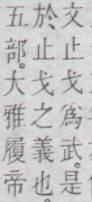 文止戈爲武是
於止戈之義也
五部。大雅履帝